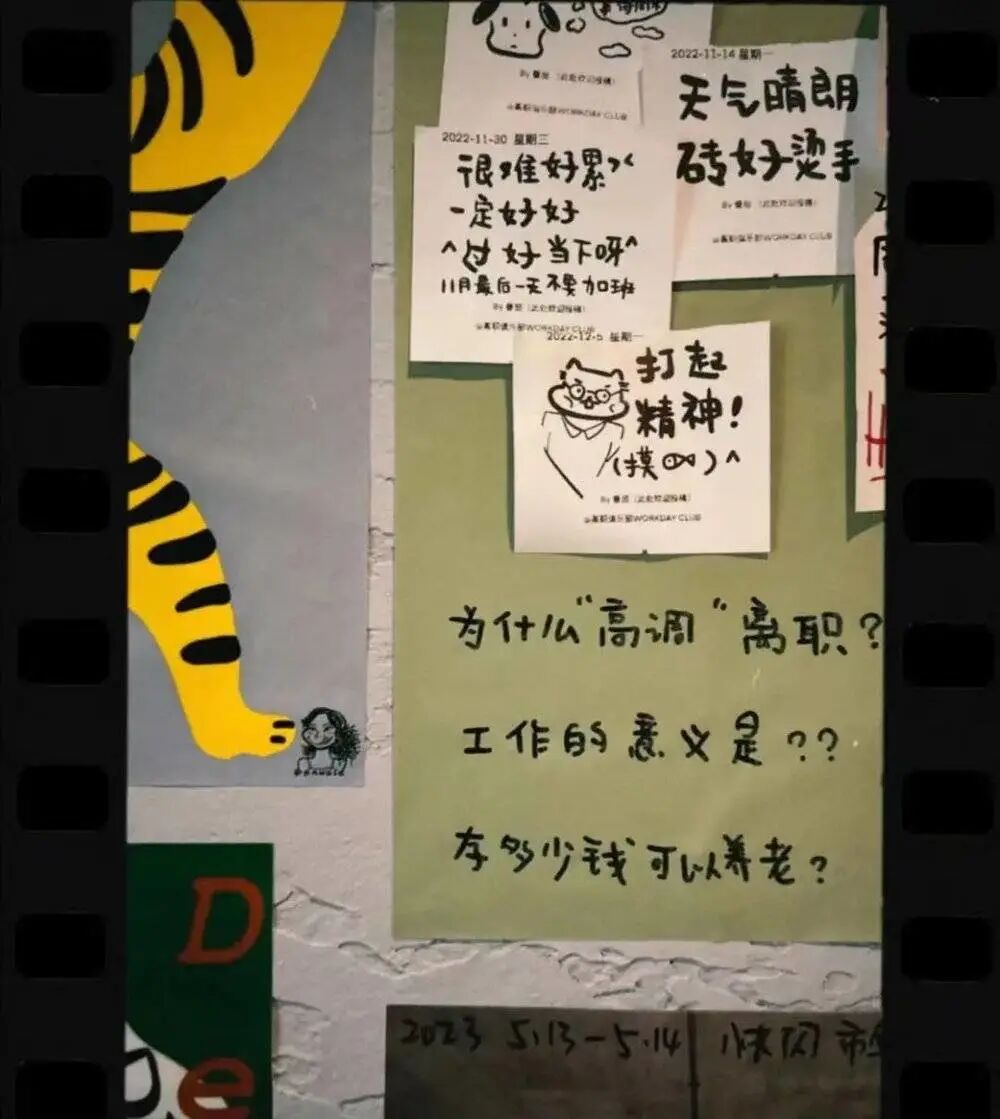 2022-11-14 星期一
天气晴朗
砖好烫手
(此处欢迎投稿)
@离职俱乐部WORKDAY CLUB
2022-11-30 星期三
很难好累
一定好好
^过好当下呀^
11月最后一天不要加班
(此处欢迎投稿)
WORKDAY CLUB
2022-12-5 星期一
打起
精神!
(摸 )^
(此处欢迎投稿)
WORKDAY CLUB
为什么“高调”离职?
工作的意义是??
存多少钱可以养老?
De
2023 5.13-5.14 快闪市